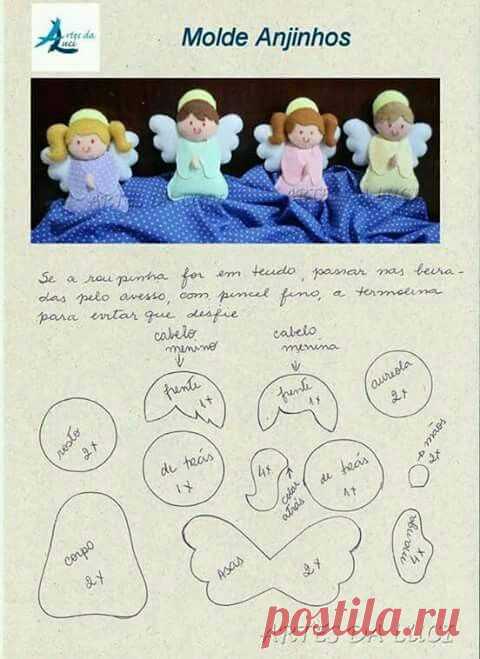 Artes da
Luci
Molde Anjinhos
Se a roupinha for em tecido, passar nas beira-
das pelo avesso, com pincel fino, a termolina
para evitar que desfie
cabelo
menino
cabelo
menina
frente
1x
frente
1x
aureola
2x
rosto
2x
de trás
1x
4x
colar
atrás
de trás
1x
mãos
2x
corpo
2x
Asas
2x
manga
4x
postila.ru
ARTES DA LUCI